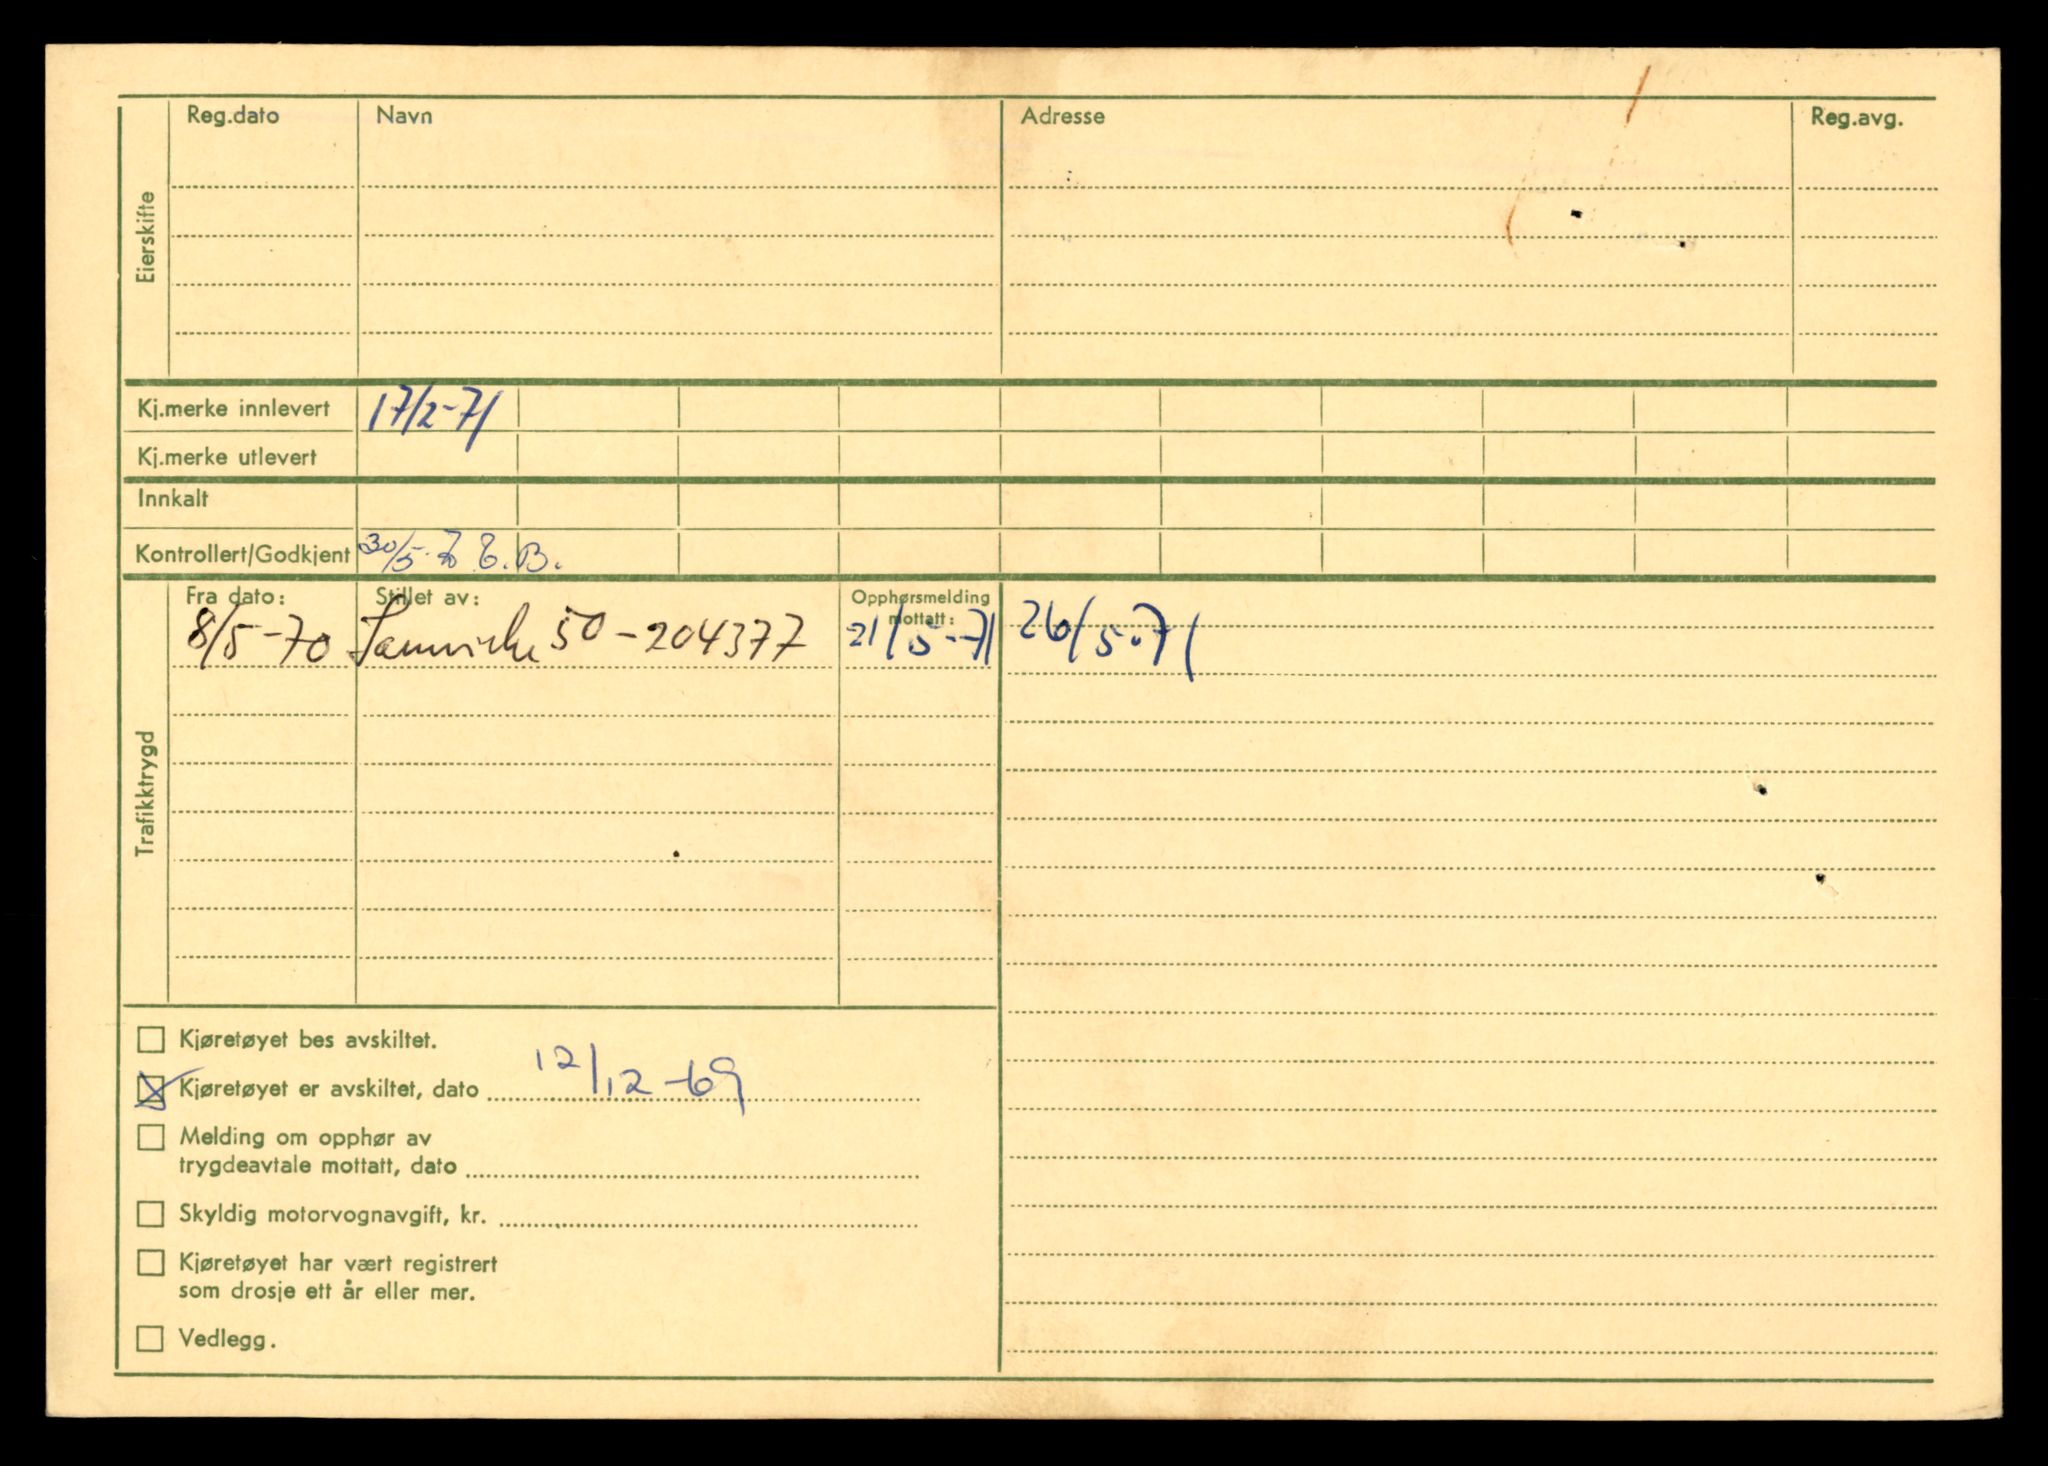 Reg.dato Navn Adresse Reg.avg.
Eierskifte
Kj.merke innlevert 17/2-71
Kj.merke utlevert
Innkalt
Kontrollert/Godkjent 30/5-70 E.B.
Trafikktrygd
Fra dato: Stillet av: Opphørsmelding mottatt:
8/5-70 Samvirke 50-204377 21/5-71 26/5-71
Kjøretøyet bes avskiltet.
Kjøretøyet er avskiltet, dato 12/12-69
Melding om opphør av
trygdeavtale mottatt, dato
Skyldig motorvognavgift, kr.
Kjøretøyet har vært registrert
som drosje ett år eller mer.
Vedlegg.